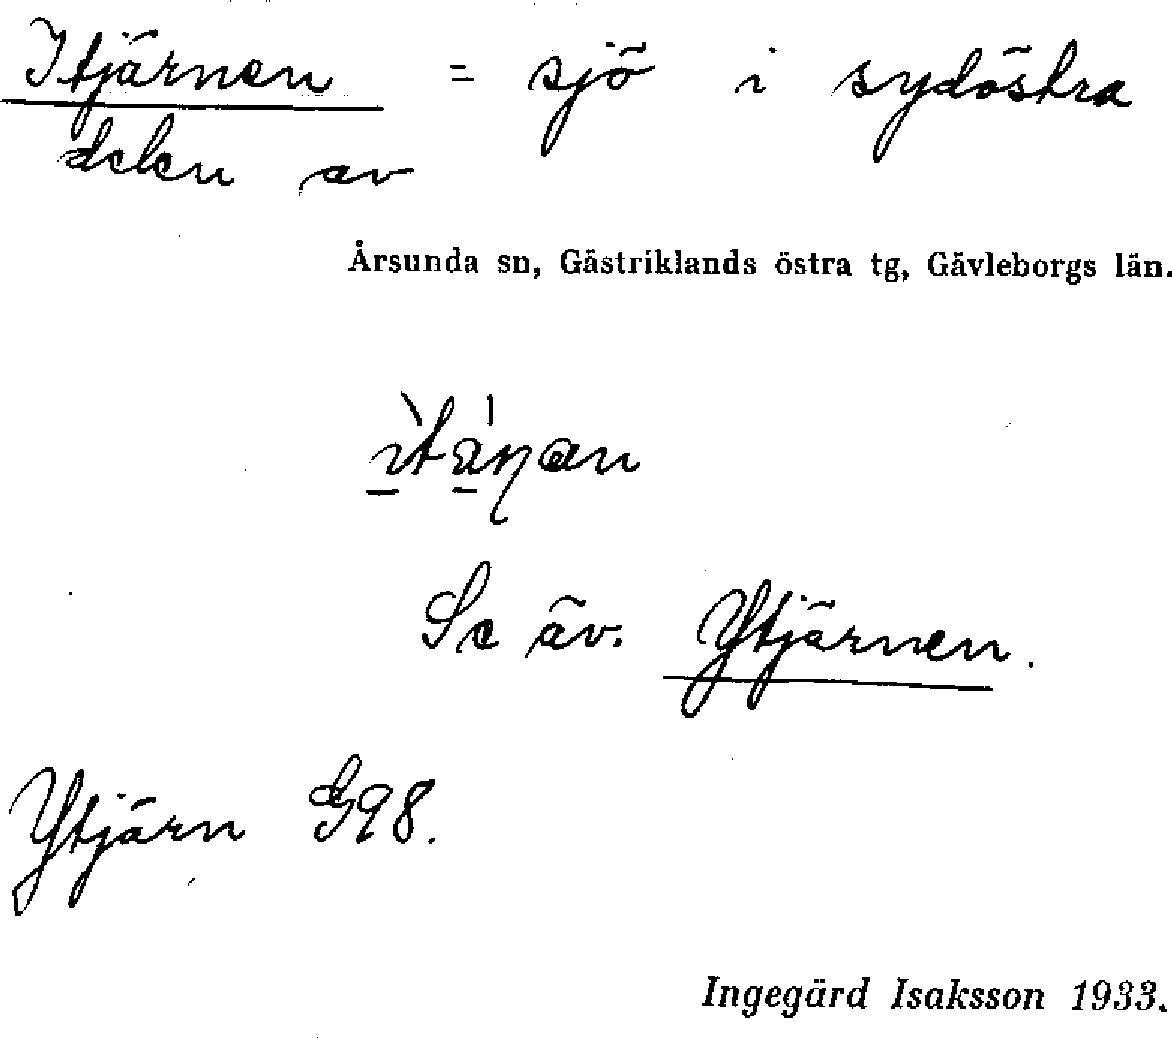 Itjärnen = sjö i sydöstra
delen av
Årsunda sn, Gästriklands östra tg, Gävleborgs län.
Se äv. Ytjärnen.
Ytjärn G98.
Ingegärd Isaksson 1933.